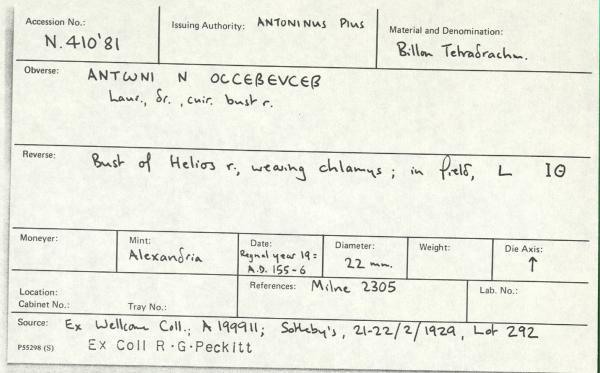 Accession No.: N.410'81
Issuing Authority: ANTONINUS PIUS
Material and Denomination: Billon Tetradrachm.
Obverse: ANTωNI N OCCEBEVCEB
Laur., dr., cuir. bust r.
Reverse: Bust of Helios r., wearing chlamys; in field, L IΘ
Moneyer:
Mint: Alexandria
Date: Regnal year 19 =
A.D. 155-6
Diameter: 22 mm.
Weight:
Die Axis: ↑
Location:
Cabinet No.: Tray No.:
References: Milne 2305
Lab. No.:
Source: Ex Wellcome Coll.; A 199911; Sotheby's, 21-22/2/1929, Lot 292
P55298 (S) Ex Coll R.G.Peckitt